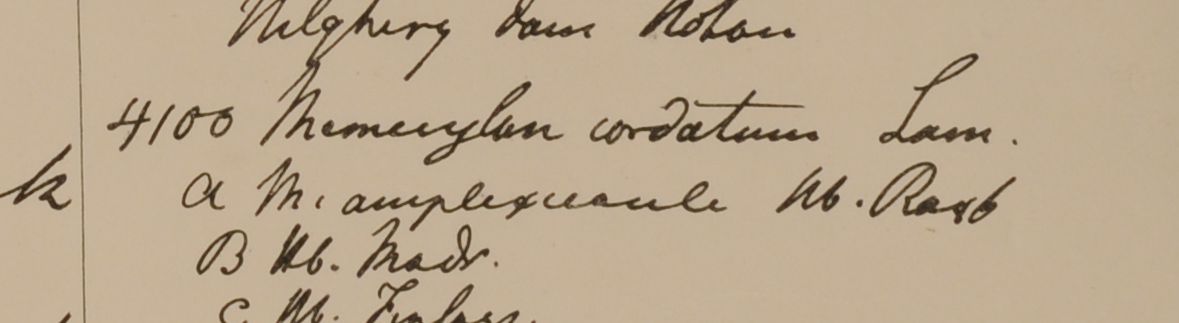 Nilghery Dom Rotan
4100 Memecylon cordatum Lam.
k a M. amplexicaule Hb. Roxb
B Hb. Madr.
C Hb. Finlays.